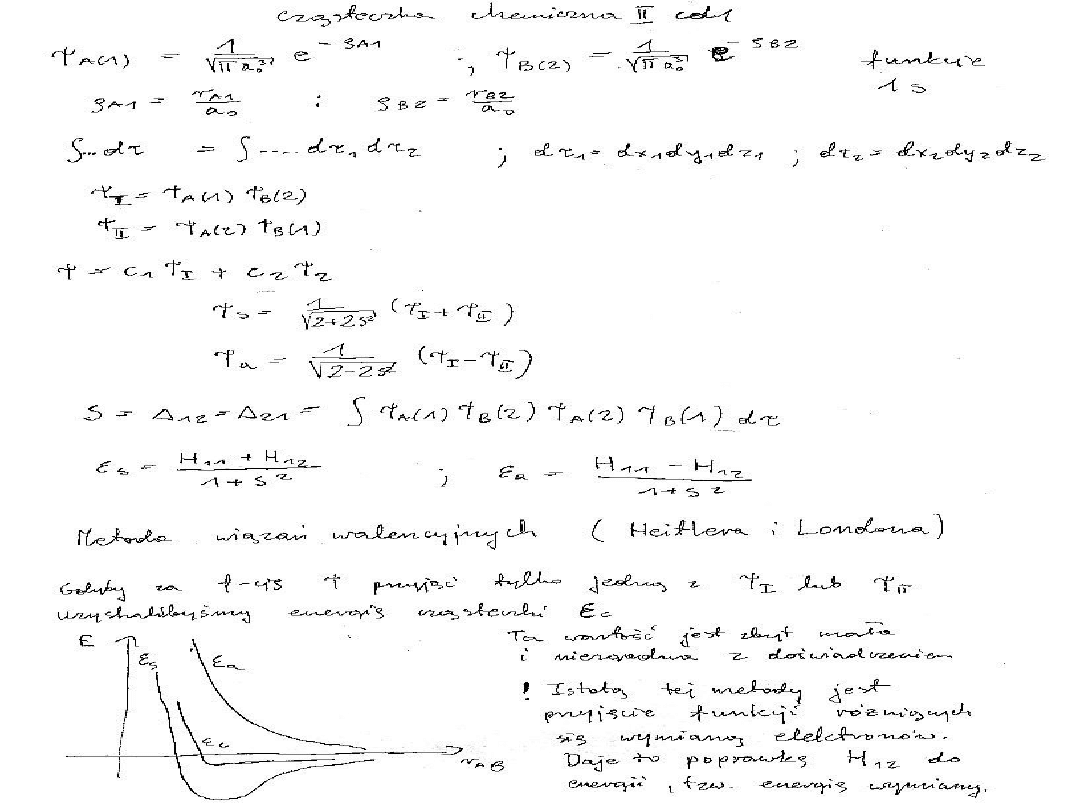 cząsteczka chemiczna II cd
Ψ_A(1) = 1/√(π a₀³) e^(-ϱA1) ; Ψ_B(2) = 1/√(π a₀³) e^(-ϱB2) funkcje
1s
ϱA1 = r_A1/a₀ : ϱB2 = r_B2/a₀
∫...dτ = ∫.... dτ₁ dτ₂ ; dτ₁ = dx₁dy₁dz₁ ; dτ₂ = dx₂dy₂dz₂
Ψ_I = Ψ_A(1) Ψ_B(2)
Ψ_II = Ψ_A(2) Ψ_B(1)
Ψ = C₁Ψ_I + C₂Ψ₂
Ψs = 1/√(2+2S²) (Ψ_I + Ψ_II)
Ψa = 1/√(2-2S²) (Ψ_I - Ψ_II)
S = Δ₁₂ = Δ₂₁ = ∫ Ψ_A(1) Ψ_B(2) Ψ_A(2) Ψ_B(1) dτ
Es = (H₁₁ + H₁₂)/(1+S²) ; Ea = (H₁₁ - H₁₂)/(1+S²)
Metoda wiązań walencyjnych (Heitlera i Londona)
Gdyby za f-cję Ψ przyjąć tylko jedną z Ψ_I lub Ψ_II
uzyskalibyśmy energię cząsteczki Ec
Ta wartość jest zbyt mała
i niezgodna z doświadczeniem
! Istotą tej metody jest
przyjęcie funkcji różniących
się wymianą elektronów.
Daje to poprawkę H₁₂ do
energii , tzw. energię wymiany.
E
Es
Ea
Ec
r_AB